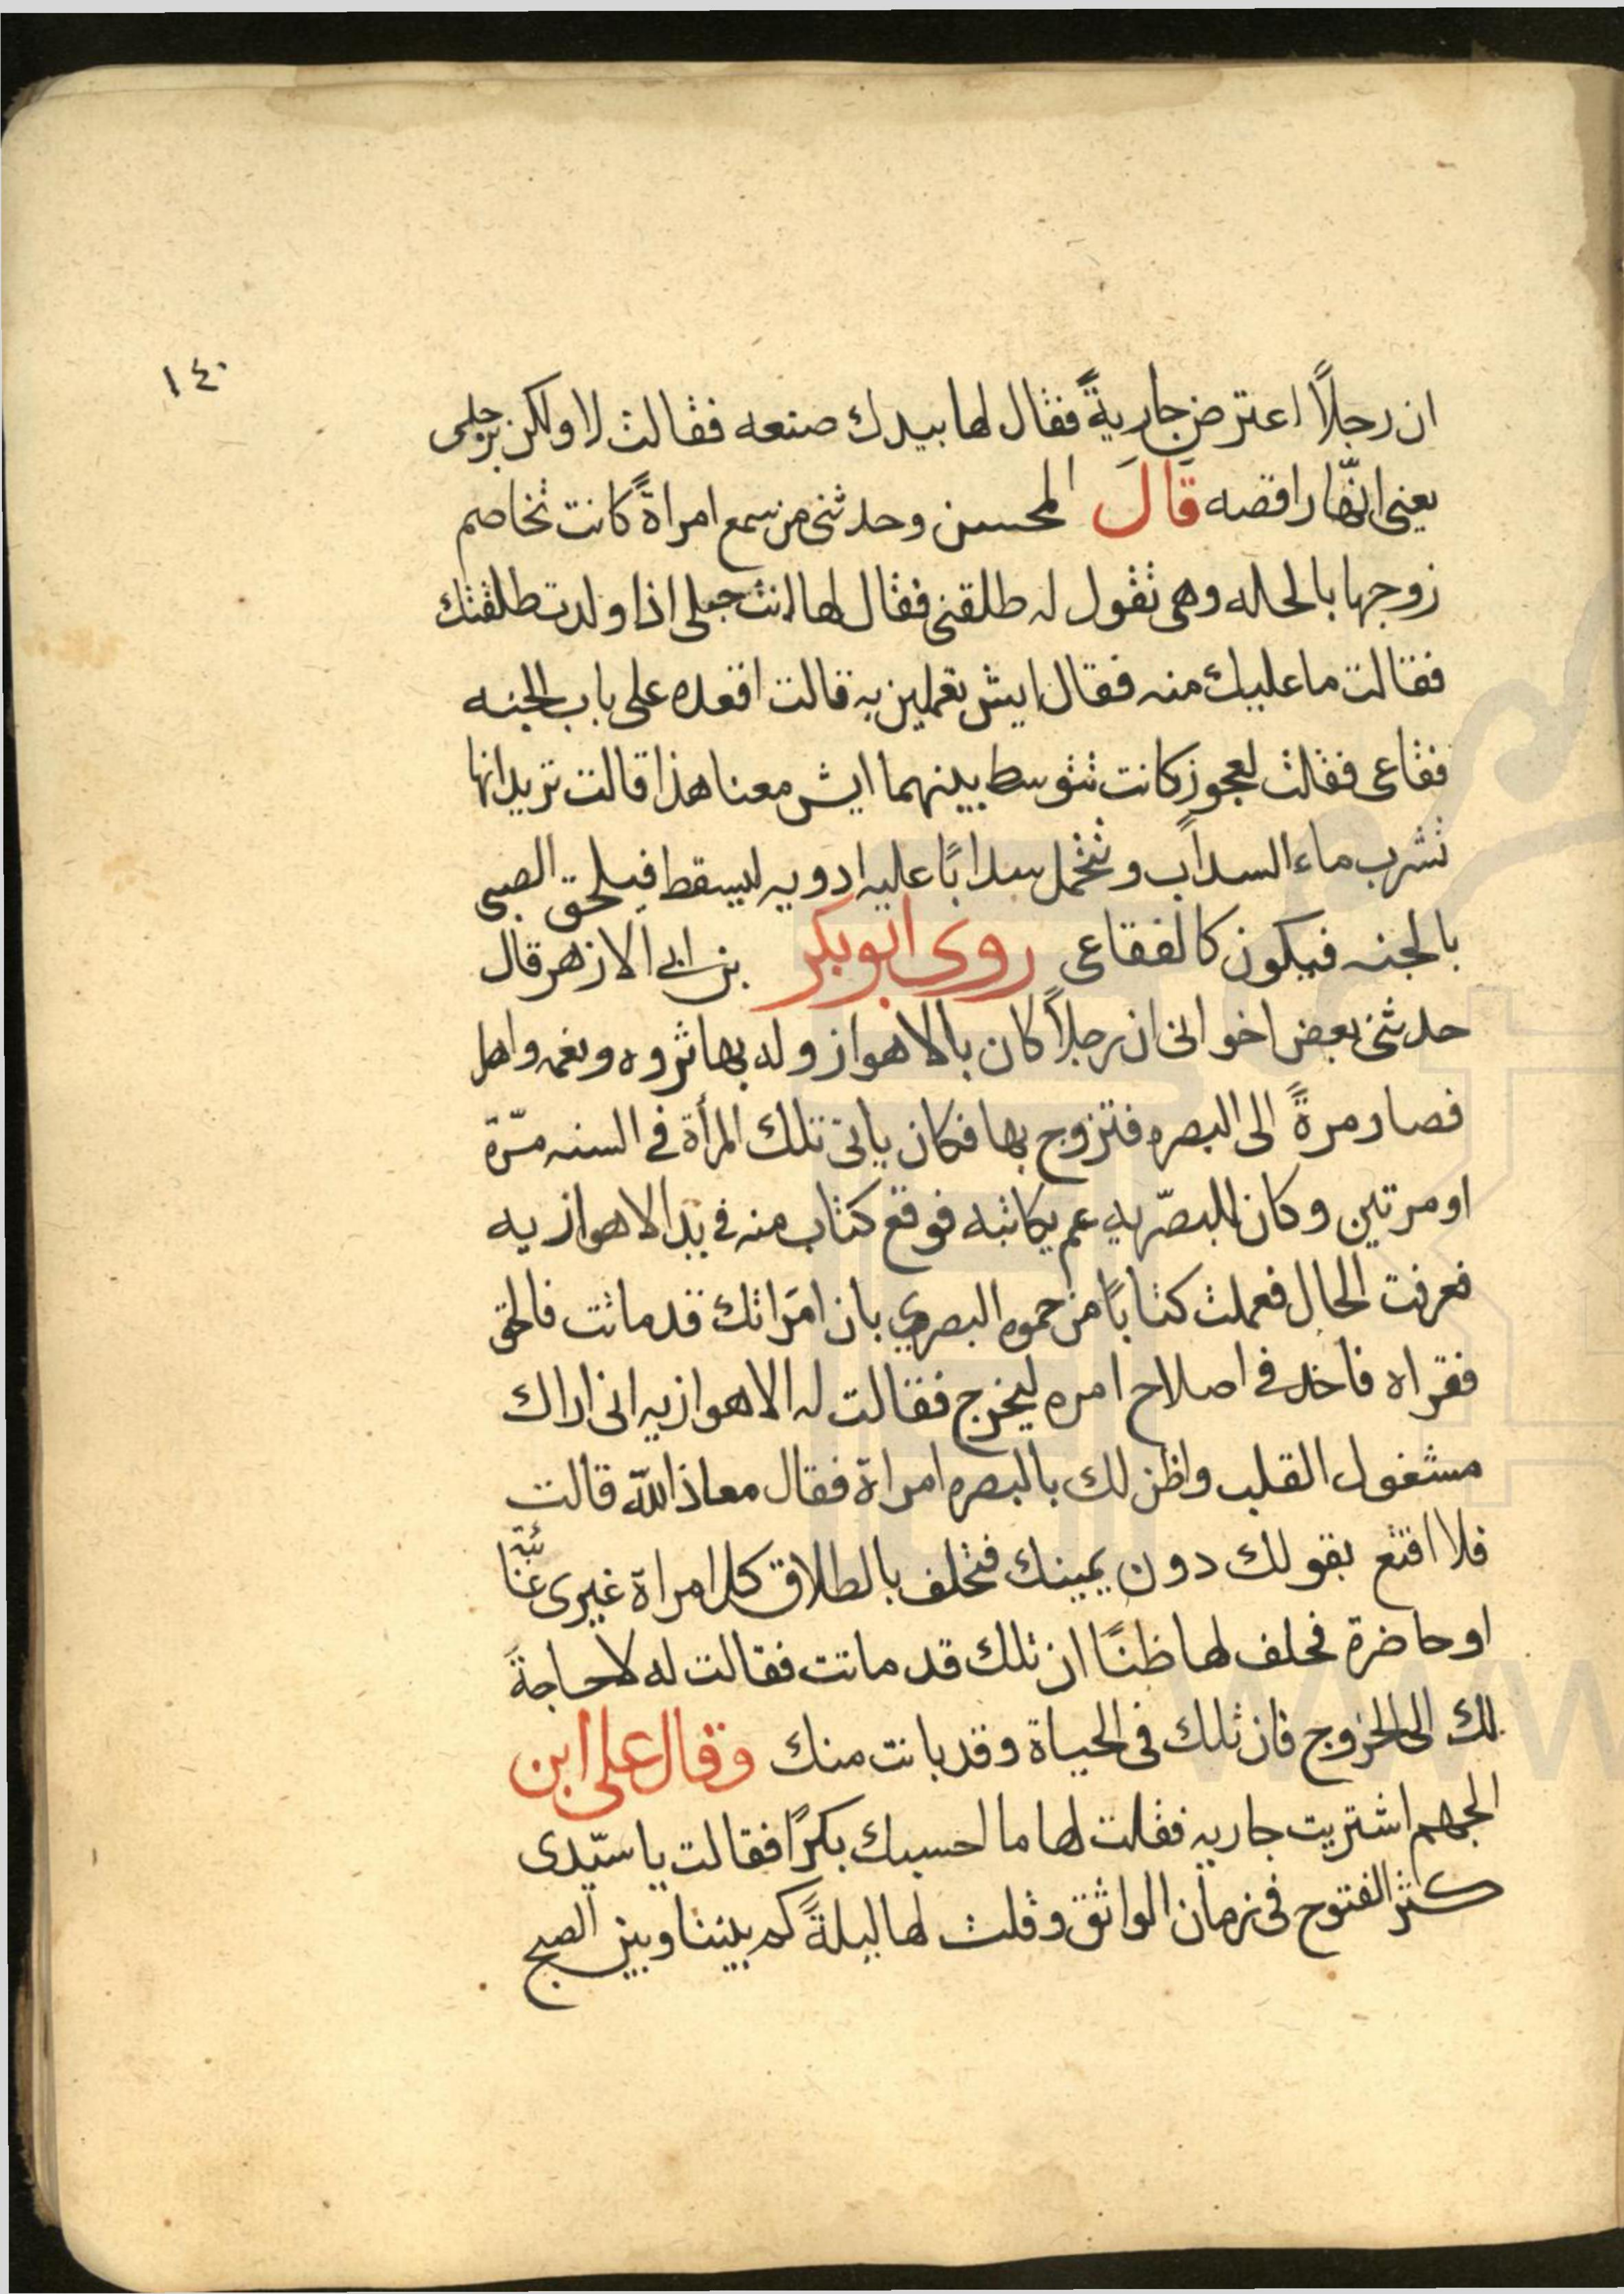 ١٤٠
ان رجلًا اعترض جاريةً فقال لها بيدك صنعه فقالت لا ولكن برجلى
يعنى انّها راقصه قَالَ المحسن وحدثنى من سمع امراةً كانت تخاصم
زوجها بالحاله وهى تقول له طلقنى فقال لها انت حبلى اذا ولدت طلقتك
فقالت ما عليك منه فقال ايش تعملين به قالت اقعده على باب الجنه
فقاعى فقلت لعجوز كانت تتوسط بينهما ايش معنا هذا قالت تريد انها
تشرب ماء السداب وتتحمل سدابًا عليه ادويه ليسقط فيلحق الصبى
بالجنه فيكون كالفقاعى روى ابوبكر بن ابى الازهر قال
حدثنى بعض اخوانى ان رجلًا كان بالاهواز وله بها ثروه ونعمه واهل
فصار مرةً الى البصره فتزوج بها فكان ياتى تلك المرأة فى السنه مرّة
او مرتين وكان للبصّريه عم يكاتبه فوقع كتاب منه فى يد الاهوازيه
فعرفت الحال فعملت كتابًا من حموه البصرى بان امَراتك قد ماتت فالحق
فقراه فاخذ فى اصلاح امره ليخرج فقالت له الاهوازيه انى اراك
مشغول القلب واظن لك بالبصره امراة فقال معاذ الله قالت
فلا اقنع بقولك دون يمينك فتحلف بالطلاق كل امراة غيرى غائبة
او حاضرة فحلف لها ظنًا ان تلك قد ماتت فقالت له لا حاجةَ
لك الى الخروج فان تلك فى الحياة وقد بانت منك وقال على ابن
الجهم اشتريت جاريه فقلت لها ما احسبك بكرًا فقالت يا سيّدى
كثر الفتوح فى زمان الواثق وقلت لها ليلةً كم بيننا وبين الصبح